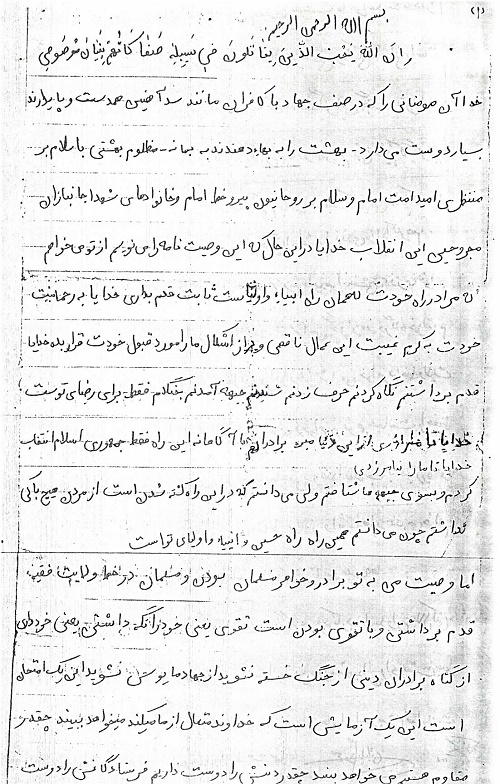 (۱)
بسم الله الرحمن الرحیم
ان الله یحب الذین یقاتلون فی سبیله صفا کانهم بنیان مرصوص
خدا آن مومنانی را که در صف جهاد با کافران مانند سد آهنین همدست و پایدارند
بسیار دوست می دارد - بهشت را به بهاء دهند نه به بهانه - مظلوم بهشتی با سلام بر
منتظری امید امت امام و سلام بر روحانیون پیرو خط امام و خانوادهای شهدا جانبازان
مجروحین این انقلاب خدایا در این حال که این وصیت نامه را می نویسم از تو می خواهم
که مرا در راه خودت که همان راه انبیاء و اولیاست ثابت قدم بداری خدایا به رحمانیت
خودت به کرم غیبیت این اعمال ناقص و پر از اشکال ما را مورد قبول خودت قرار بده خدایا
قدم برداشتنم نگاه کردنم حرف زدنم شنیدنم جبهه آمدنم جنگم فقط برای رضای توست
خدایا تا ما را نیامرزی از این دنیا مبر برادران ما آگاهانه این راه فقط جمهوری اسلام انتخاب
خدایا تا ما را نیامرزی
کردیم و بسوی جبهه ها شتافتم ولی می دانستم که در این راه کشته شدن است از مردن هیچ باکی
نداشتم چون می دانستم همین راه راه حسین و انبیاء و اولیای تو است
اما وصیت من به تو برادر و خواهر مسلمان بودن و مسلمان در خط ولایت فقیه
قدم برداشتن و با تقوی بودن است تقوی یعنی خود را نگه داشتن یعنی خودداری
از گناه برادران دینی از جنگ خسته نشوید از جهاد مایوس نشوید این یک امتحان
است این یک آزمایشی است که خداوند متعال از ما میکند میخواهد ببیند چقدر
مقاوم هستیم می خواهد ببیند چقدر دینش را دوست داریم فرستادگانش را دوست